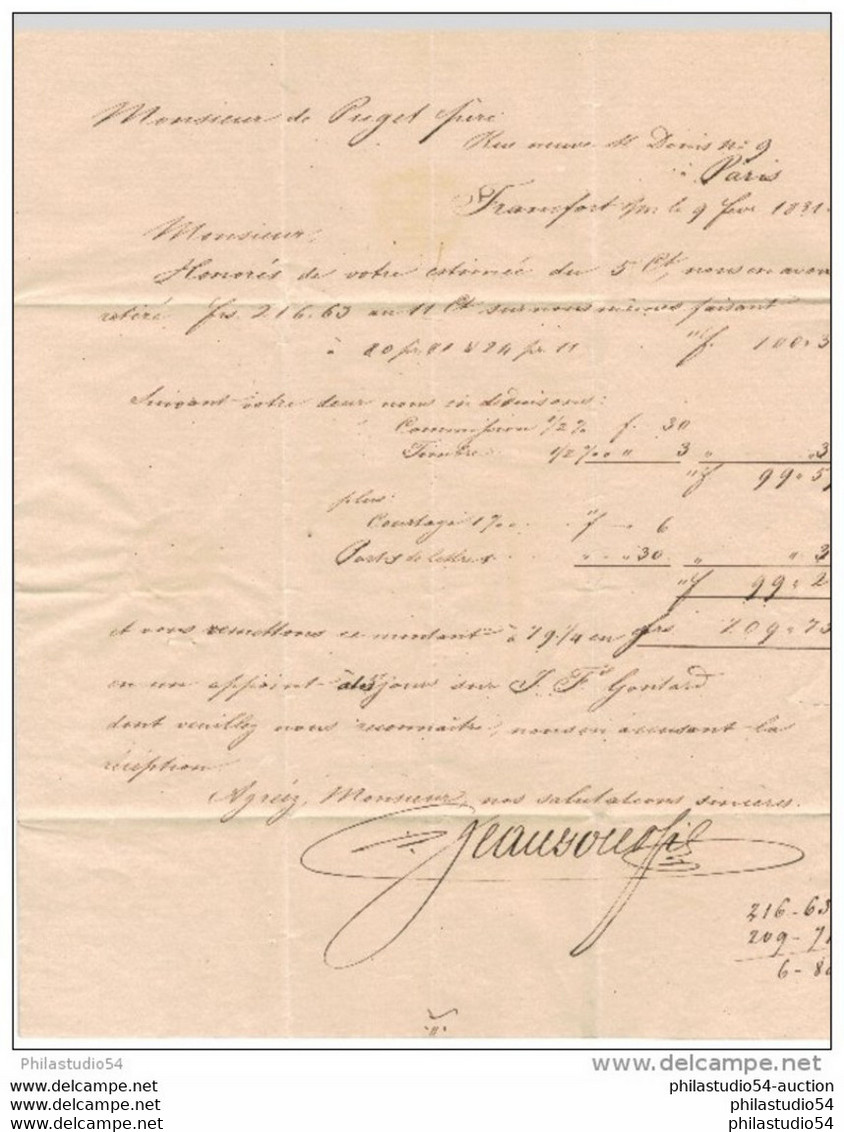 Monsieur de Puget père
Rue neuve St Denis No 9
à Paris
Francfort s/m. le 9 fevr 1831
Monsieur,
Honorés de votre estimée du 5 Ct, nous en avon
retiré frs. 216.63 au 11 Ct sur nous mêmes faisant
f. 100 " 3
Suivant votre nous en déduisons:
Commission 1/2 % f. 30
Timbre 1/2 ‰ " 3 " " 3
f 99 " 5
plus:
Courtage 1 ‰ f 6
Ports de lettres " " 30 " " 3
f 99 " 2
et vous remettons ce montant à 79 1/4 en frs 209 " 73
en un appoint jour sur J. Fs Gontard
dont veuillez nous reconnaître, nous en accusant la
réception.
Agréez, Monsieur, nos salutations sincères.
216 - 63
209 - 71
6 - 8
Philastudio54
www.delcampe.net
philastudio54-auction
philastudio54-auction
philastudio54
philastudio54
philastudio54
philastudio54